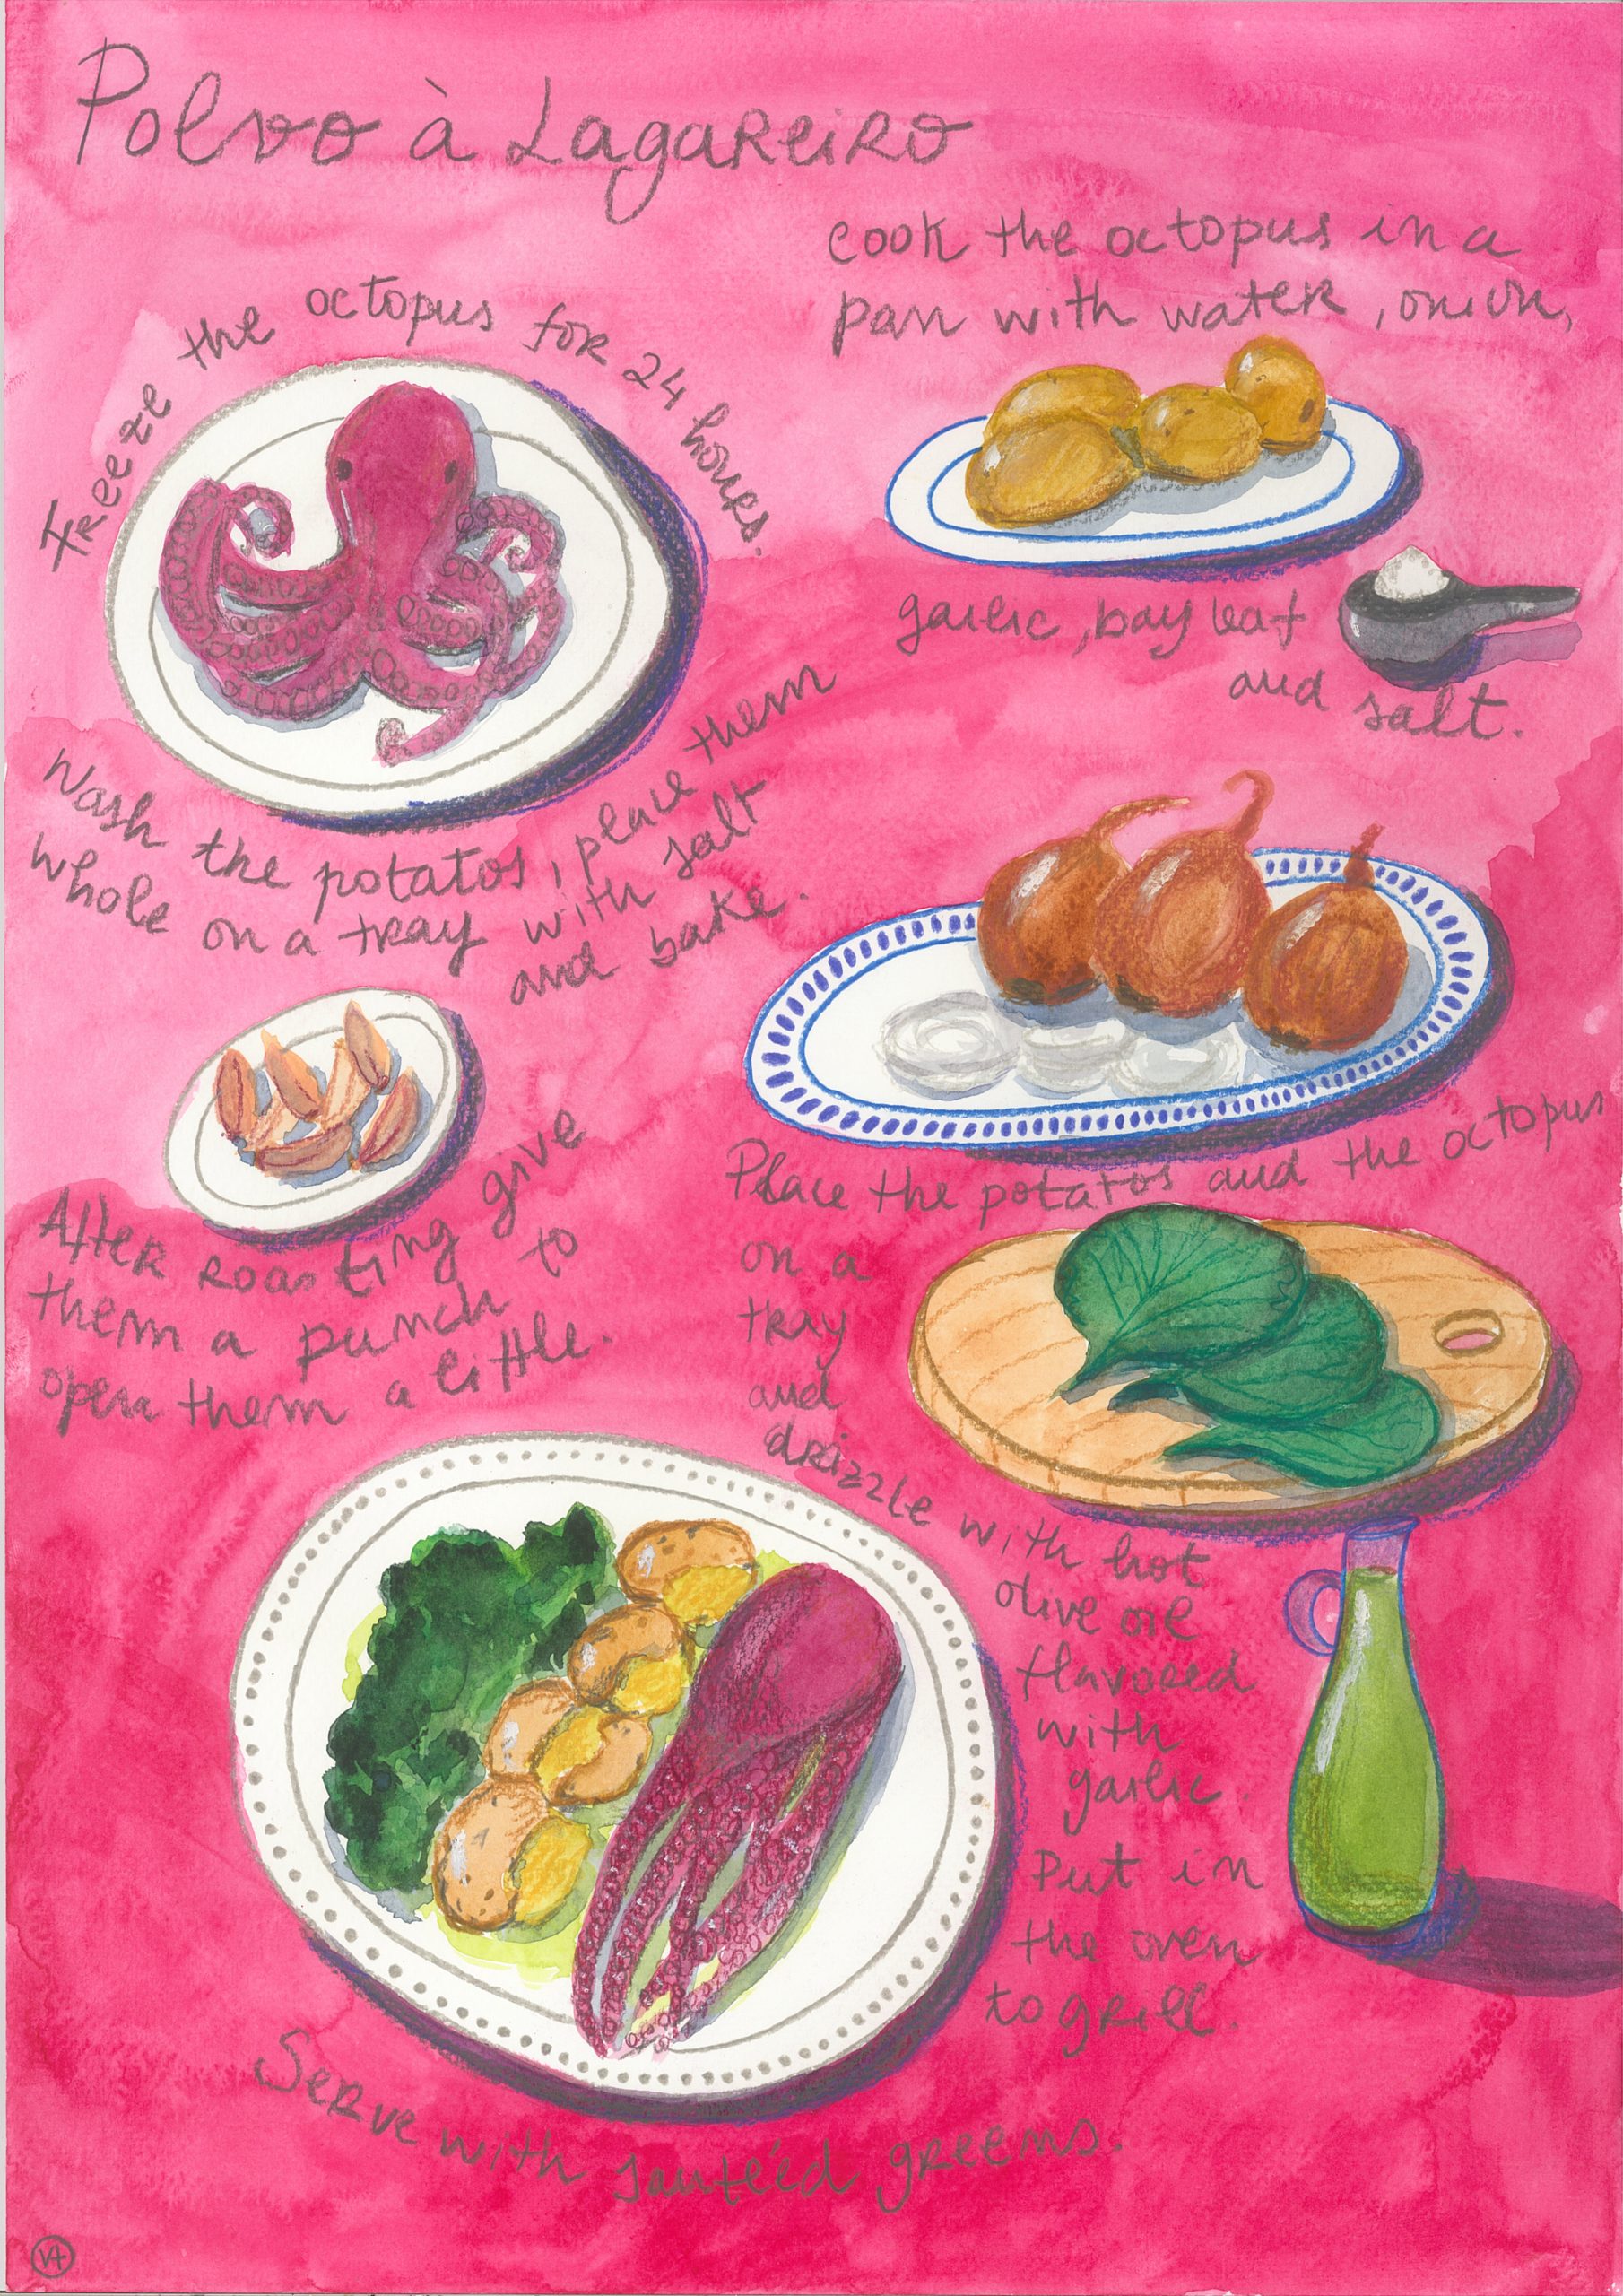 Polvo à Lagareiro
Freeze the octopus for 24 hours.
cook the octopus in a
pan with water, onion,
garlic, bay leaf
and salt.
Wash the potatos, place them
whole on a tray with salt
and bake.
After roasting give
them a punch to
open them a little.
Place the potatos and the octopus
on a
tray
and
drizzle with hot
olive oil
flavored
with
garlic.
Put in
the oven
to grill.
Serve with sautéed greens.
VA